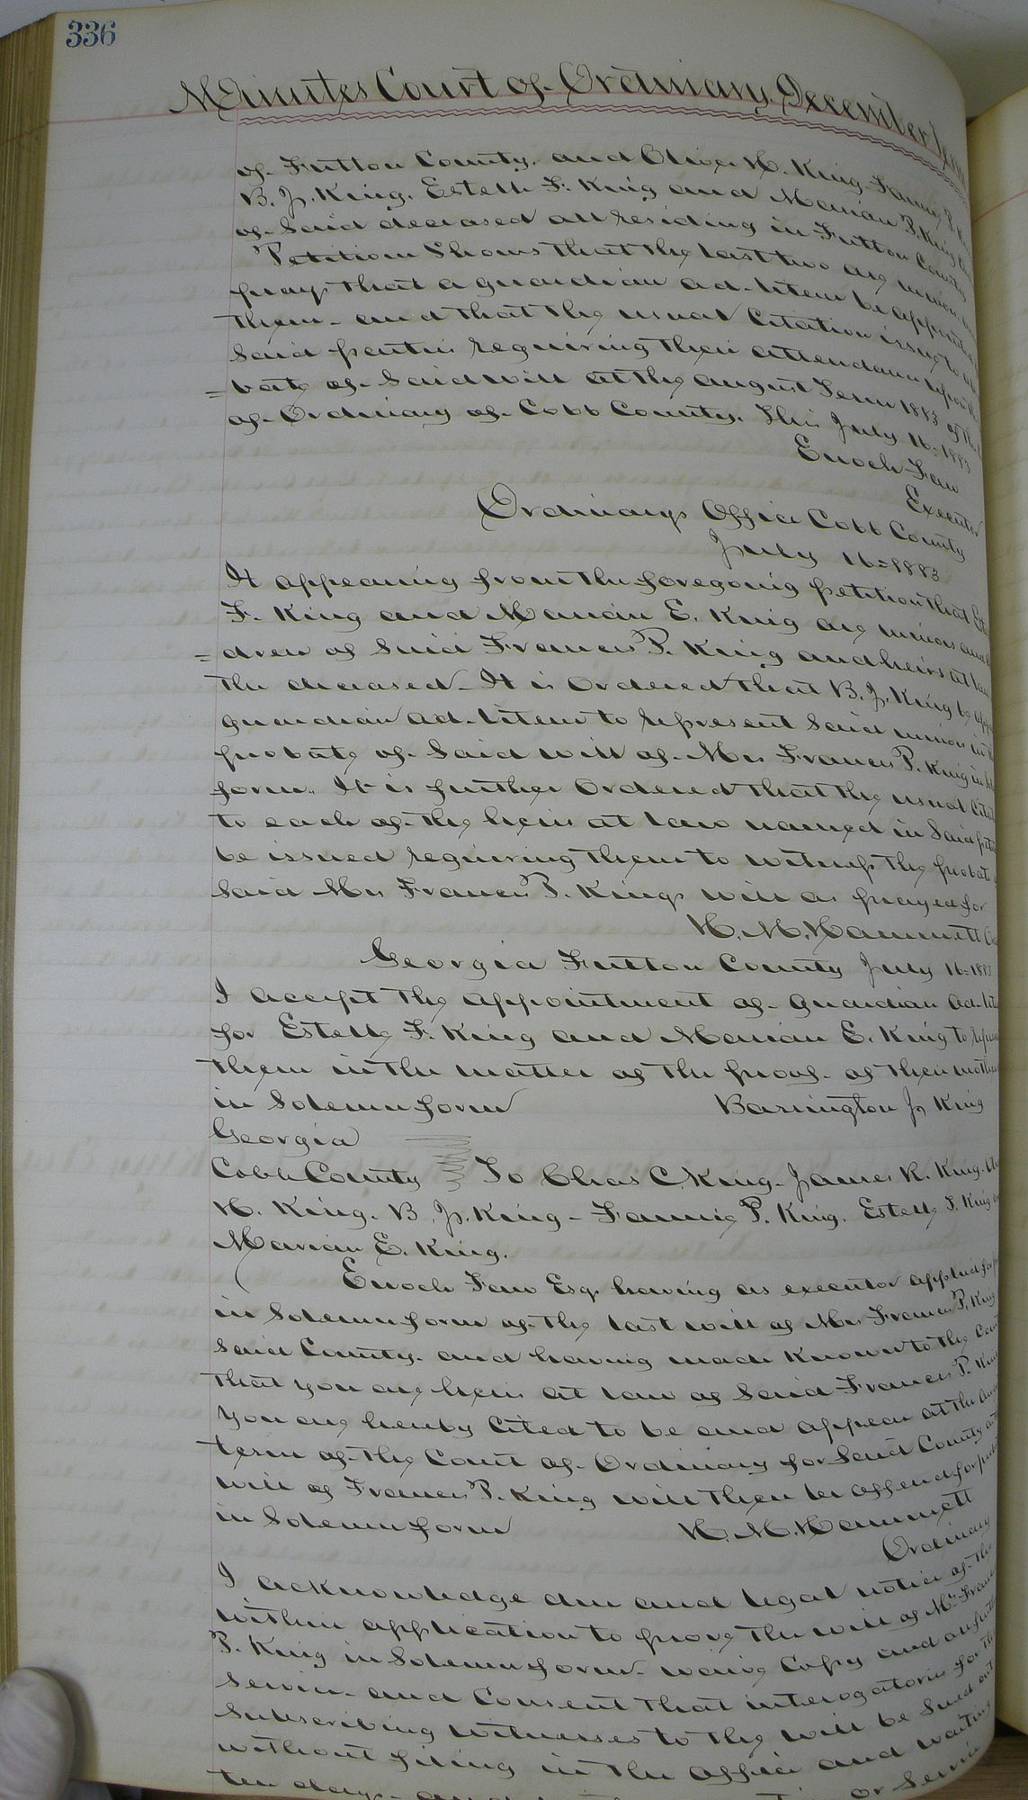 336
Minutes Court of Ordinary, December
of Fulton County, and Oliver H. King, Fanny P.
B. J. King, Estelle F. King and Marian P. King
of said deceased all residing in Fulton County
Petition Shows that the last two are minors and
prays that a guardian ad-litem be appointed
them and that the usual Citation issue to
said parties requiring their attendance before
= bate of said will at the August Term 1883 of the
of Ordinary of Cobb County. This July 16=1883
Enoch Faw
Executor
Ordinarys Office Cobb County
July 16=1883
It appearing from the foregoing petition that
F. King and Marian E. King are minors and
= dren of said Frances P. King and heirs at law
the deceased - It is Ordered that B. J. King be
guardian ad-litem to represent said minors in
probate of said will of Mrs Frances P. King in
form. It is further Ordered that the usual
to each of the heirs at law named in said
be issued requiring them to witness the probate
said Mrs Frances P. Kings will as prayed for
H. M. Hammett
Georgia Fulton County July 16=1883
I accept the appointment of guardian ad-
for Estelle F. King and Marian E. King to
them in the matter of the proof of their mothers
in Solemn form Barrington J. King
Georgia
Cobb County To Chas C. King - James R. King -
H. King. B. J. King - Fannie P. King. Estelle F. King
Marian E. King.
Enoch Faw Esq. having as executor applied for
in Solemn form of the last will of Mrs Frances P. King
said County. and having made known to the
that you are heirs at law of said Frances P. King
You are hereby Cited to be and appear at the
term of the Court of Ordinary for said County
will of Frances P. King will then be offered for
in Solemn form H. M. Hammett
Ordinary
I acknowledge due and legal notice of the
within application to prove the will of Mrs
P. King in Solemn form - waive Copy and
service - and Consent that interogatories for the
Subscribing witnesses to the will be sued out
without filing in the office and waiting
ten days - or